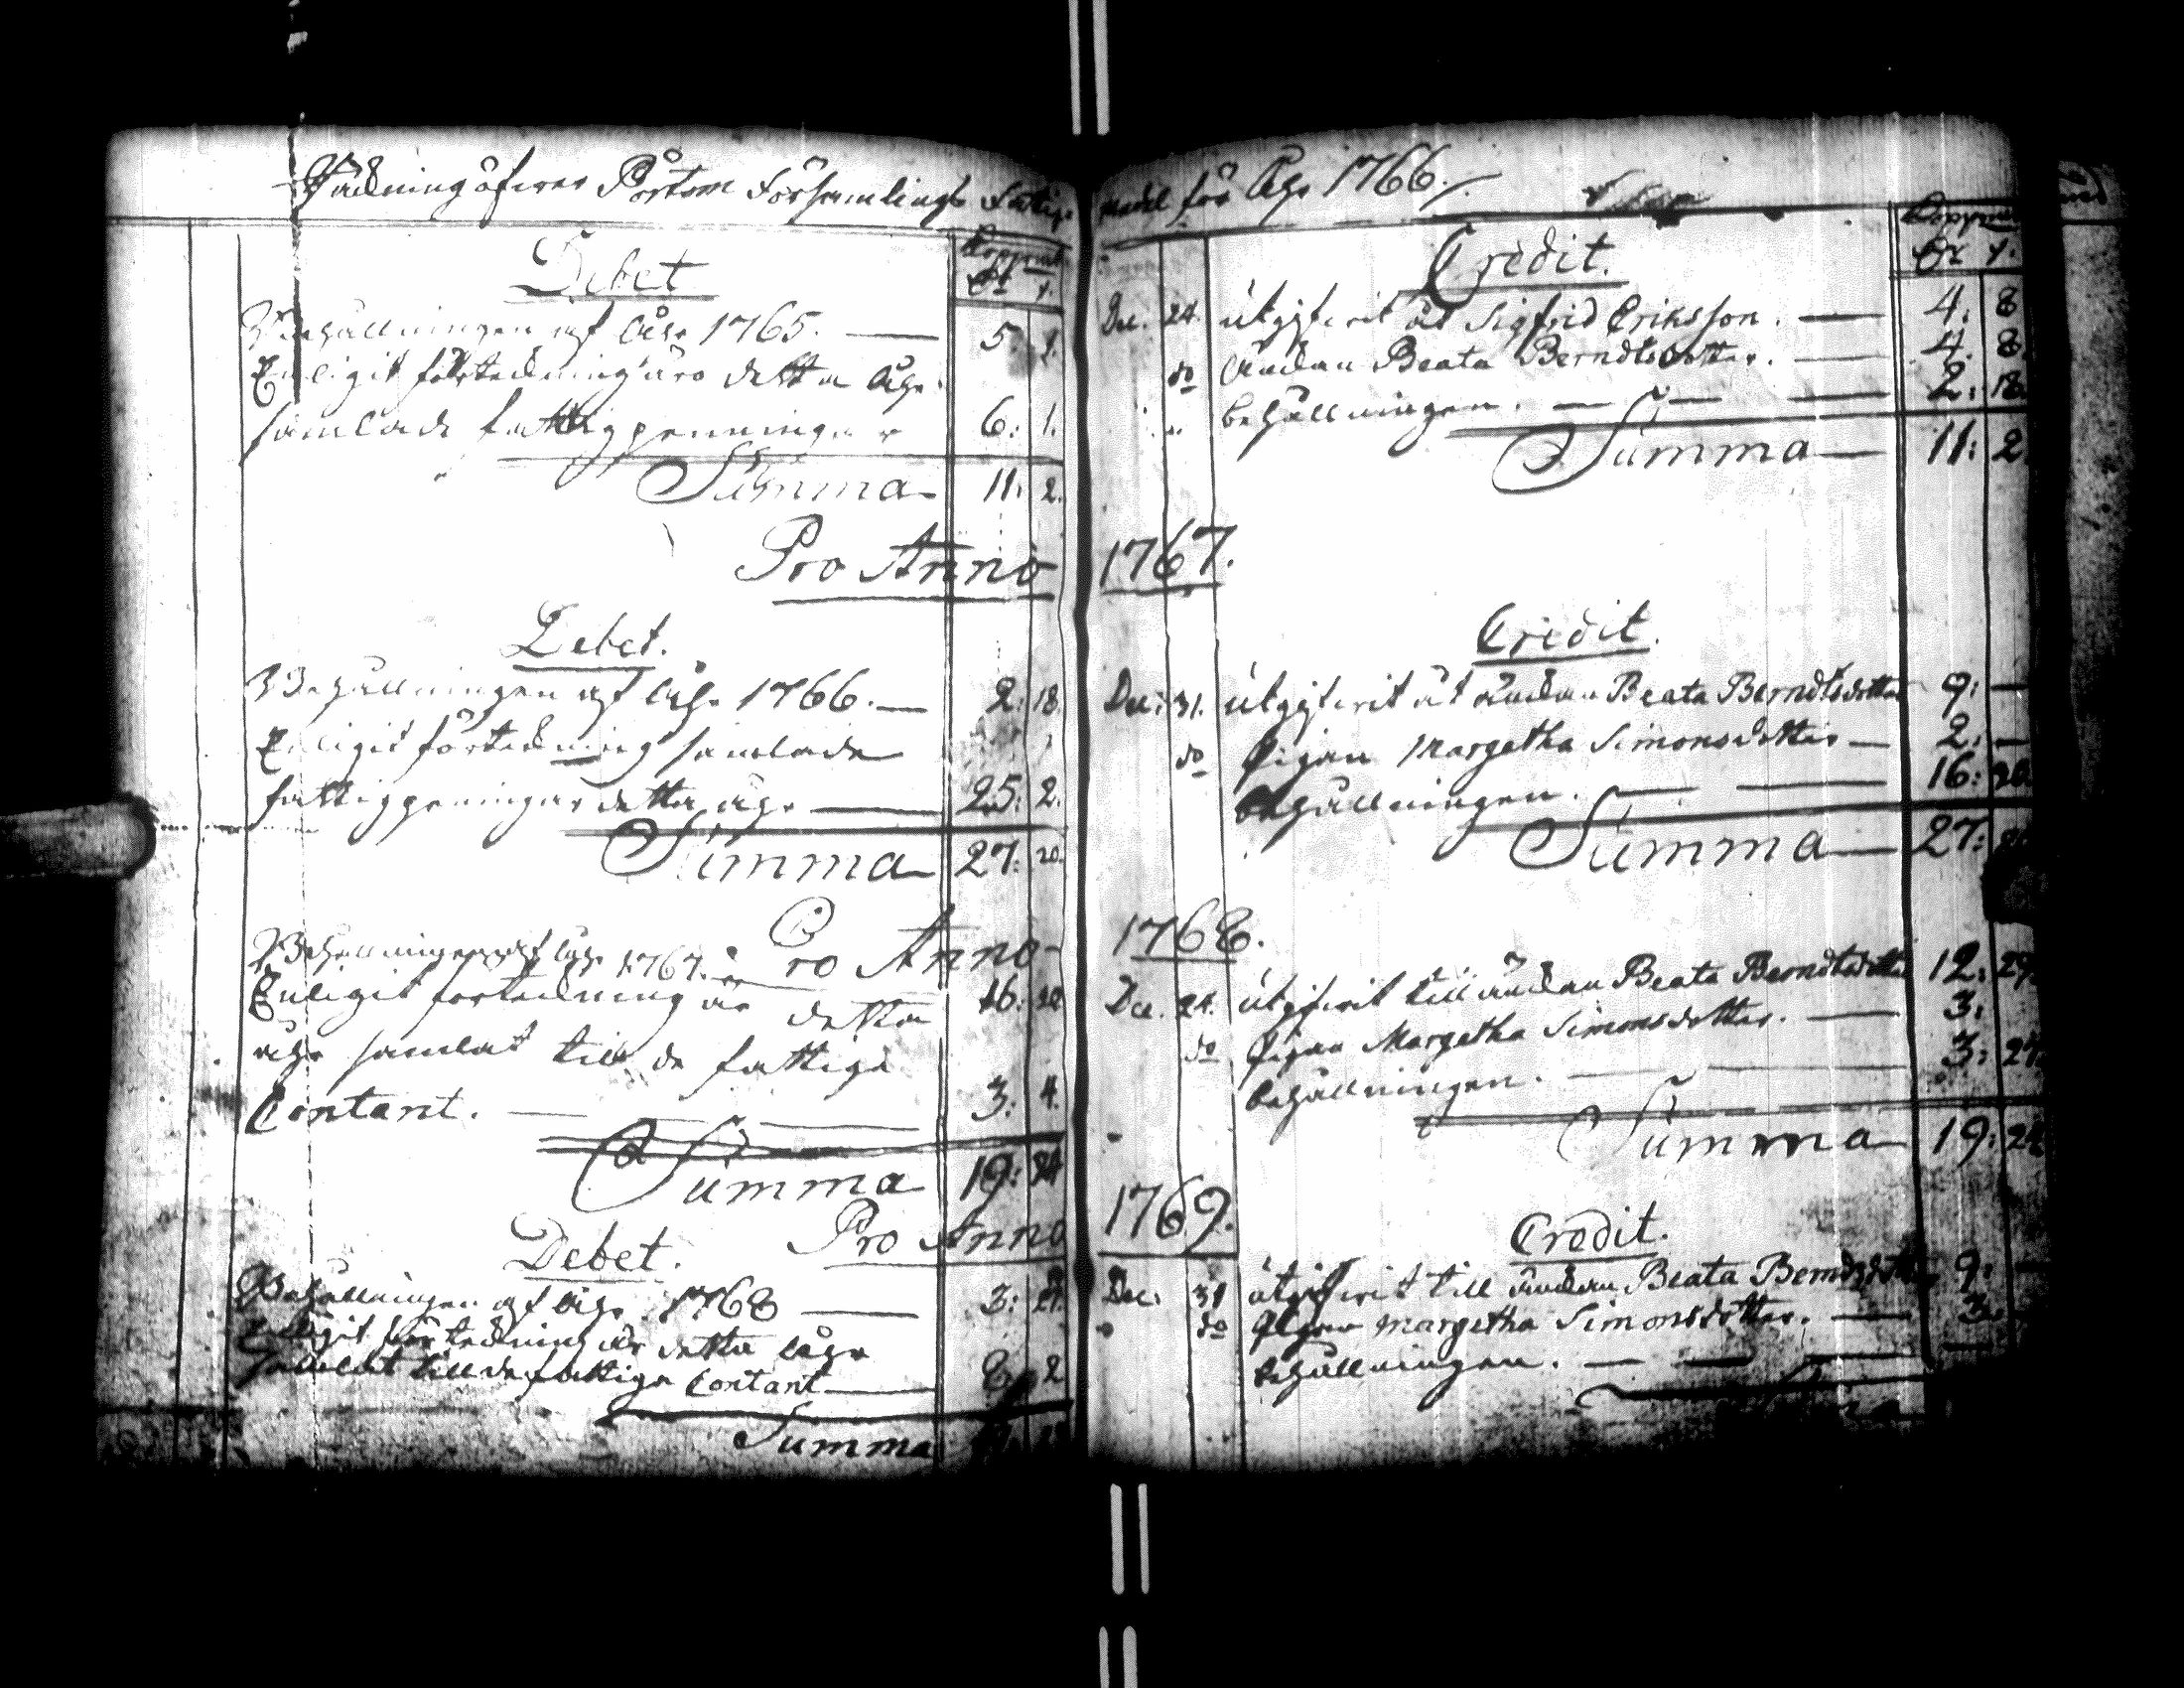 Räckning öfwer Pörtom Församlings Fattig
Debet
Koppmt
Dr ß.
Behållningen af åhr 1765. — 5. 1.
Enligit förteckning äro detta åhr
samlade fattigpenningar 6: 1.
Summa 11. 2.
Pro Anno
Debet.
Behållningen af åhr 1766. — 2: 18.
Enligit förteckning samlade
fattigpeningar detta åhr — 25: 2.
Summa 27: 20.
Pro Anno
Behållningen af åhr 1767. 16: 20
Enligit förteckning är detta
åhr samlat till de fattiga
Contant. — 3: 4.
Summa 19: 24
Pro Anno
Debet.
Behållningen af åhr 1768 — 3: 27.
Enligit förteckning är detta åhr
samlat till de fattiga Contant — 2
Summa
medel för åhr 1766.
Credit.
Koppmt
Dr ß.
Dec. 24. utgifwit åt Sigfrid Eriksson. — 4: 8
do änkan Beata Berndtsdotter. — 4. 8.
behållningen. — 2: 18.
Summa — 11: 2.
1767.
Credit.
Dec: 31. utgifwit åt änkan Beata Berndtsdotter 9: —
do Pigan Margetha Simonsdotter — 2: —
behållningen. — 16: 20.
Summa — 27: 20.
1768.
Dec. 24. utgifwit till änkan Beata Berndtsdotter 12: 29.
do Pigan Margetha Simonsdotter. — 3:
behållningen. — 3: 27.
Summa 19: 24
1769.
Credit.
Dec. 31 utgifwit till änkan Beata Berndtsdotter 9:
do Pigan Margetha Simonsdotter. — 3.
behållningen. —